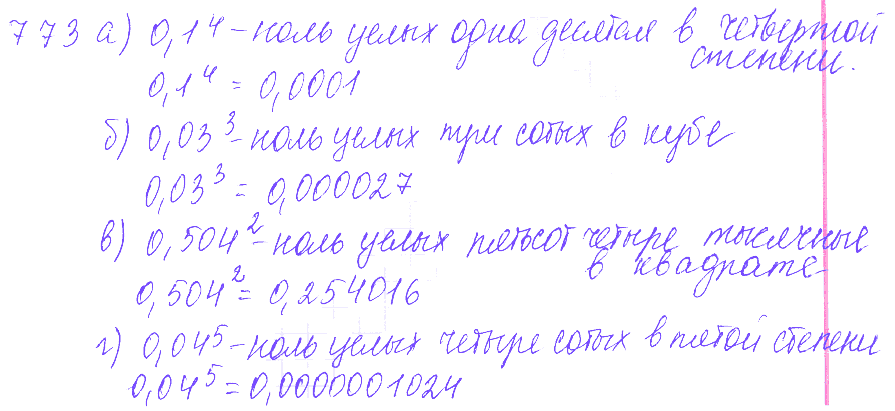 773 а) 0,1⁴ – ноль целых одна десятая в четвертой
степени.
0,1⁴ = 0,0001
б) 0,03³ – ноль целых три сотых в кубе
0,03³ = 0,000027
в) 0,504² – ноль целых пятьсот четыре тысячные
в квадрате
0,504² = 0,254016
г) 0,04⁵ – ноль целых четыре сотых в пятой степени
0,04⁵ = 0,0000001024